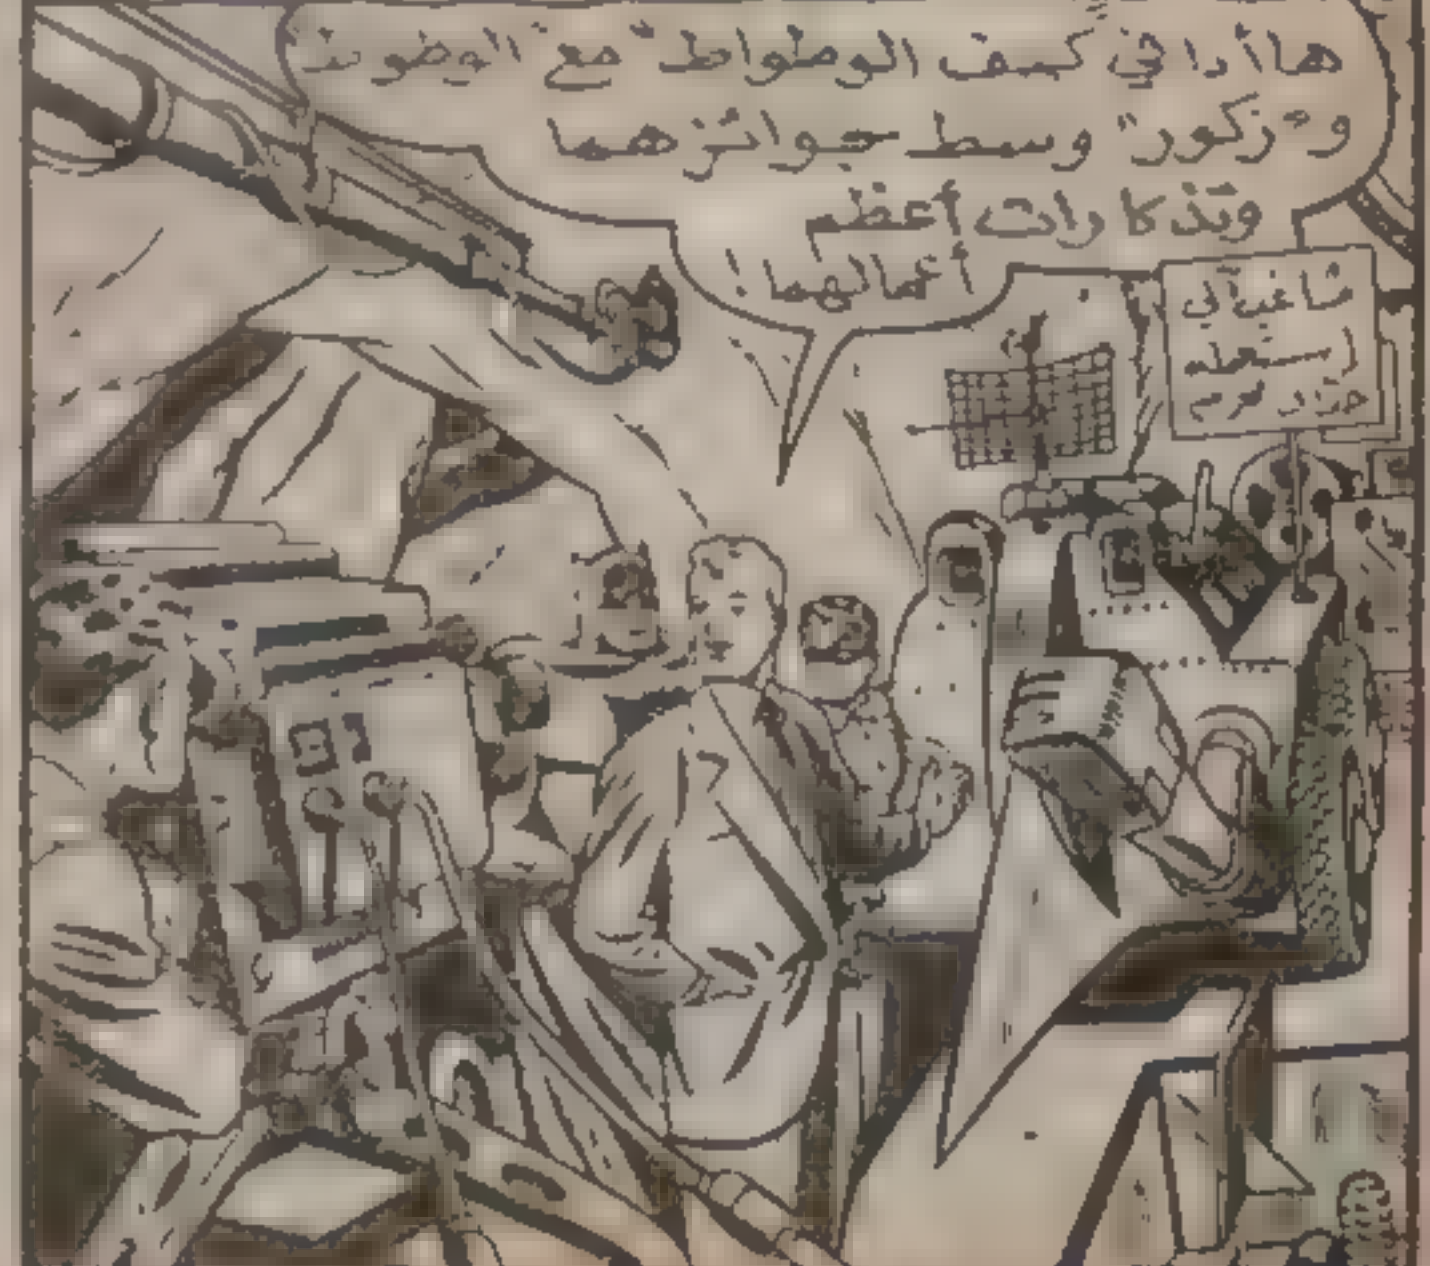 هاأذا في كهف الوطواط" مع "الوطواط"
و"زكور" وسط جوائزهما
وتذكارات أعظم
أعمالهما!